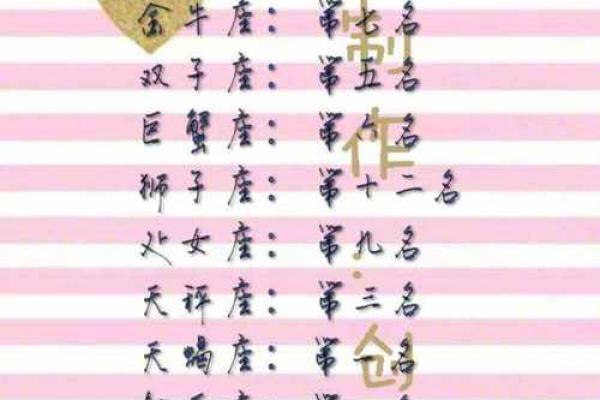 金牛座：第七名
双子座：第五名
巨蟹座：第六名
狮子座：第十二名
处女座：第九名
天秤座：第三名
天蝎座：第一名
制作：创